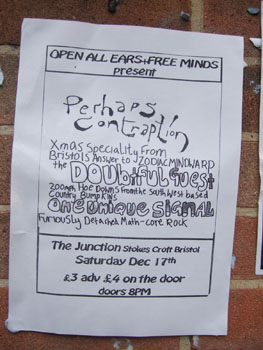 OPEN ALL EARS+FREE MINDS
present
Perhaps
Contraption
Xmas Speciality From
Bristols Answer to ZODIAC MINDWARP
the DOUbtful Guest
200mph Hoe Downs From the South West based
Country Bumpkins
One Unique Signal
Furiously Detached Math-core Rock
The Junction Stokes Croft Bristol
Saturday Dec 17th
£3 adv £4 on the door
doors 8PM